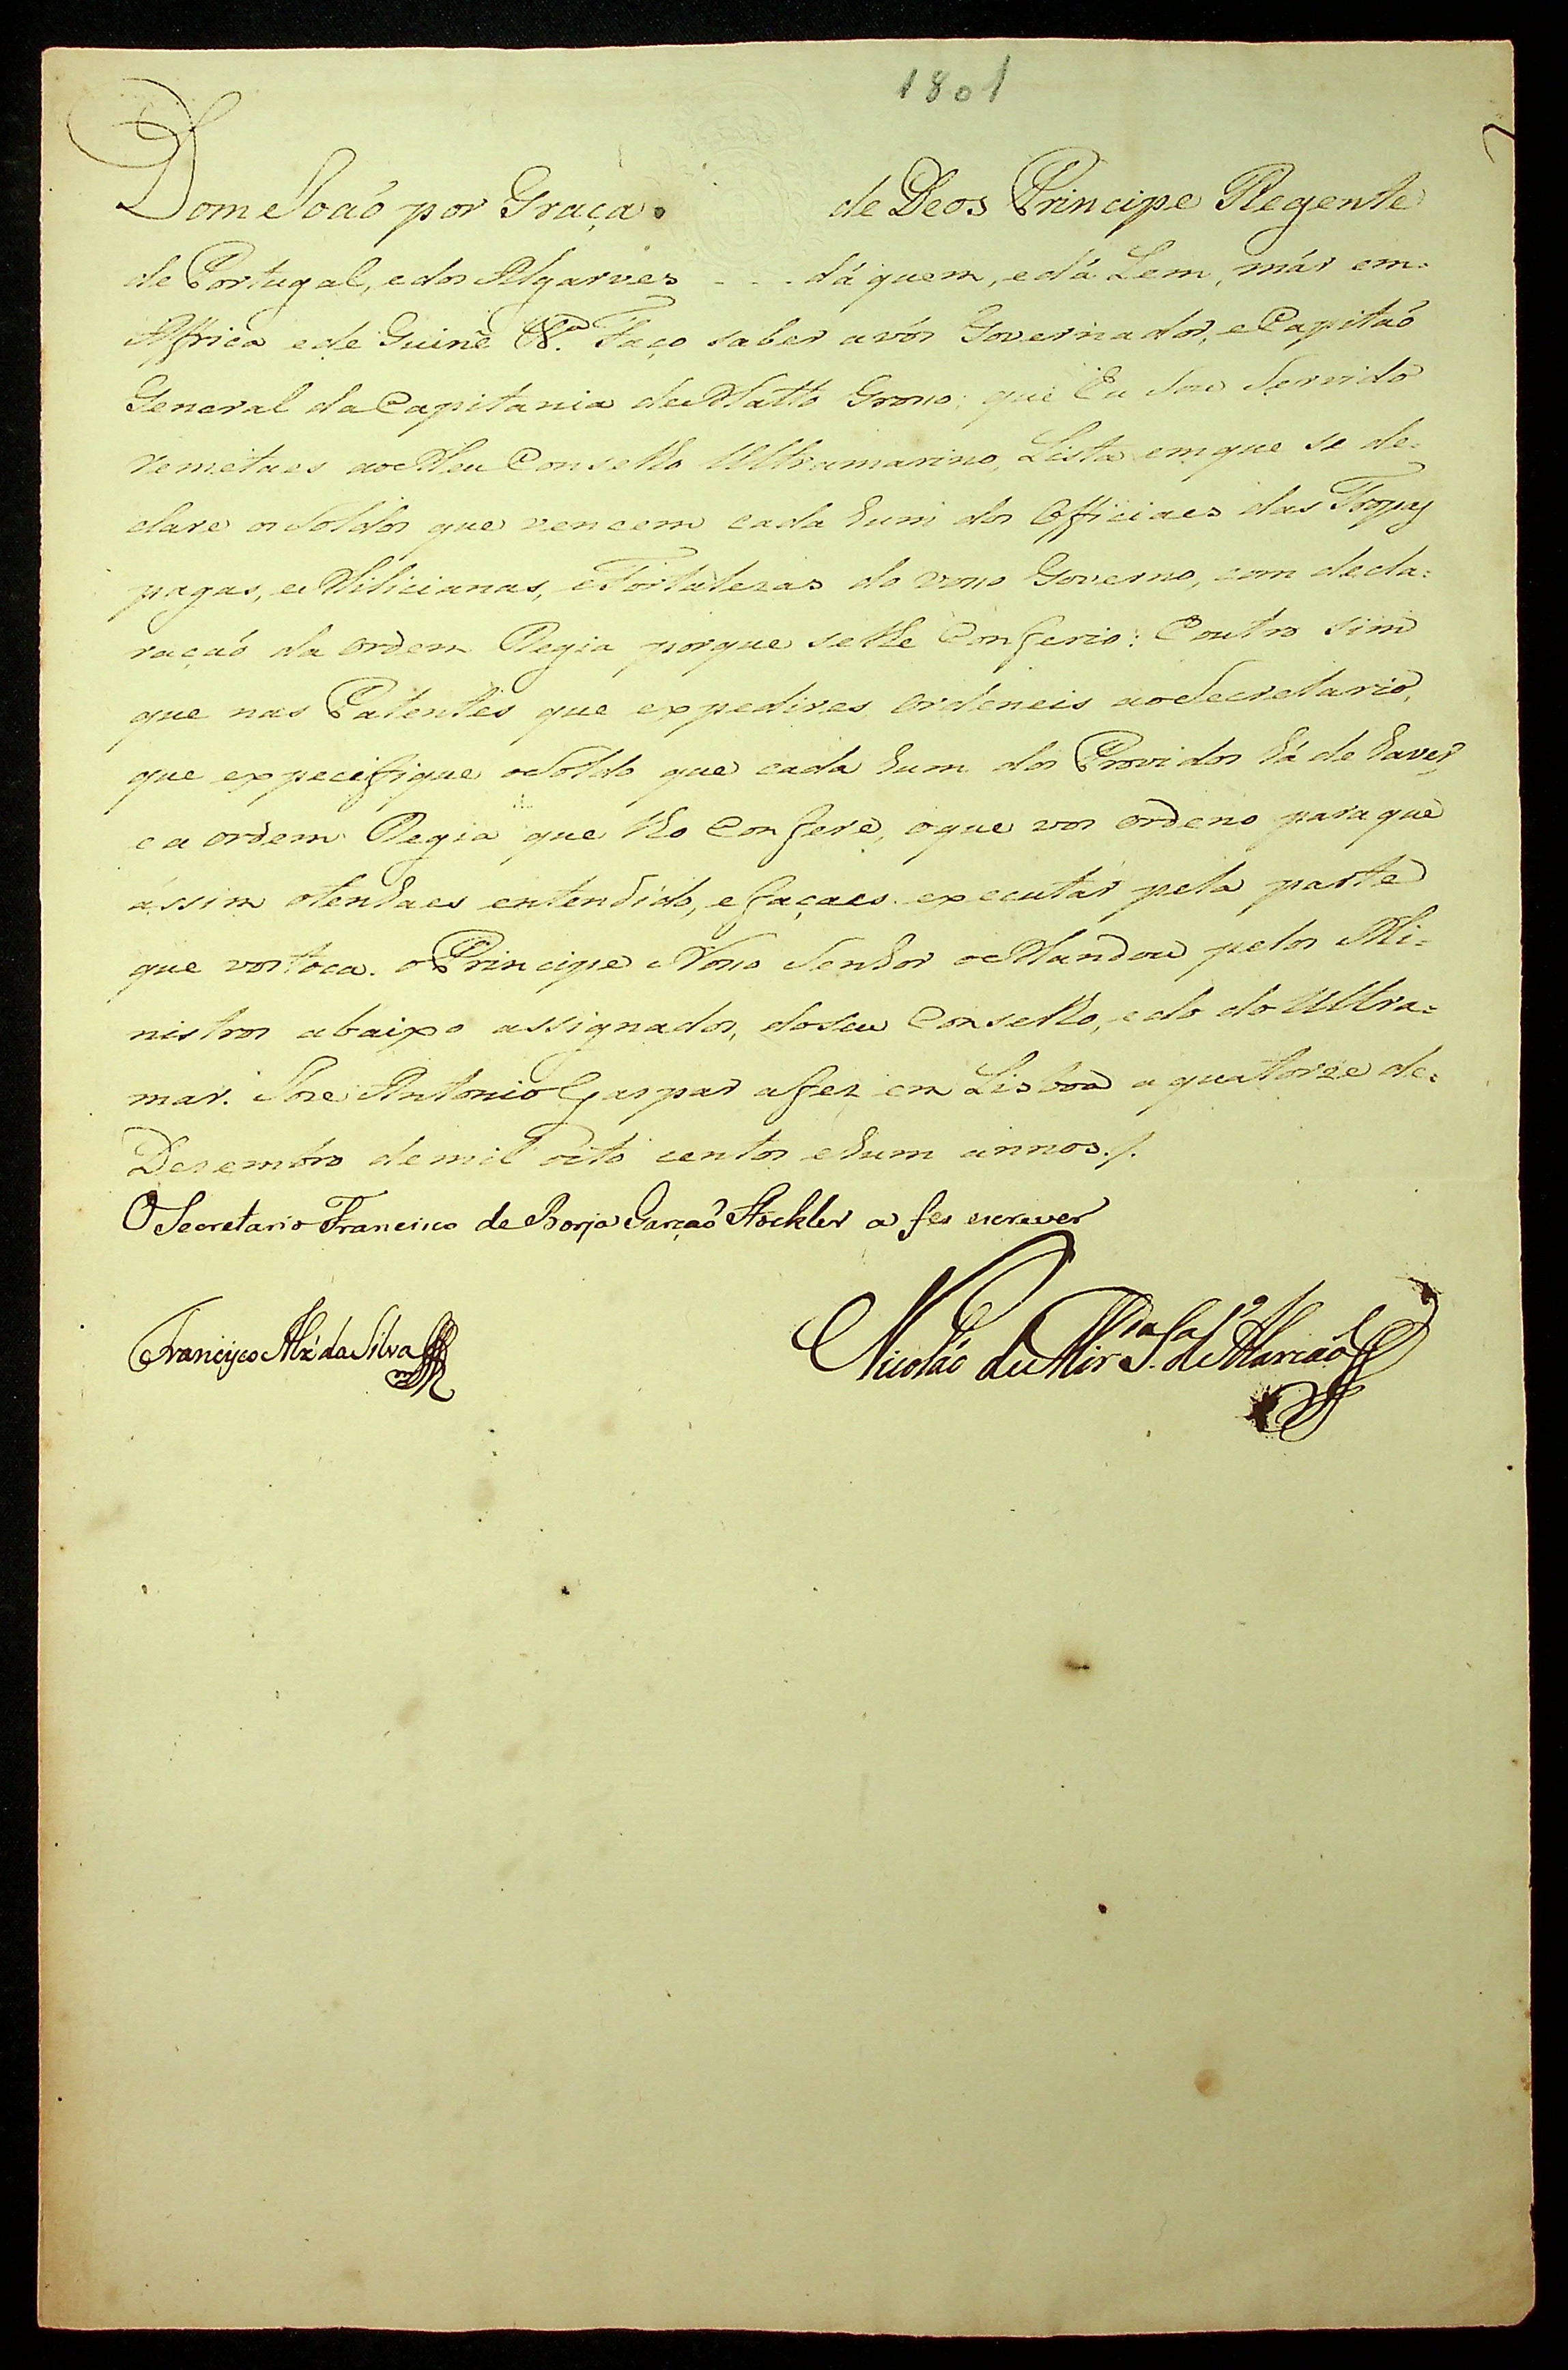 1801
Dom João por Graça de Deos Principe Regente
de Portugal, e dos Algarves dáquem, e dá Lem, már em
Affrica e de Guine &.ª Faço saber a vós Governador, e Capitaõ
General da Capitania de Matto Grosso; que Eu Sou Servido
remetaes ao Meu Conselho Ultramarino, Lista em que se de=
clare os Soldos que vencem cada hum dos Officiaes das Tropas
pagas, e Milicianas, e Fortalezas do vosso Governo, com decla=
raçaõ da ordem Regia porque se lhe Conferio: E outro sim
que nas Patentes que expedires ordeneis ao Secretario,
que expecifique o Soldo que cada hum dos Providos há de haver
e a ordem Regia que lho Confere, o que vos ordeno para que
ássim o tenhaes entendido, e façaes executár pela parte
que vos toca. o Principe Nosso Senhor o Mandou pelos Mi=
nistros abaixo assignados, do seu Conselho, e do do Ultra=
mar. Joze Antonio Gaspar a fez em Lisboa a quatorze de=
Dezembro de mil oito centos e hum annos./.
O Secretario Francisco de Borja Garçaõ Stockler a fes escrever
Francisco Alz' da Silva
Nicoláo de Mir.da S.a de Alarcaõ